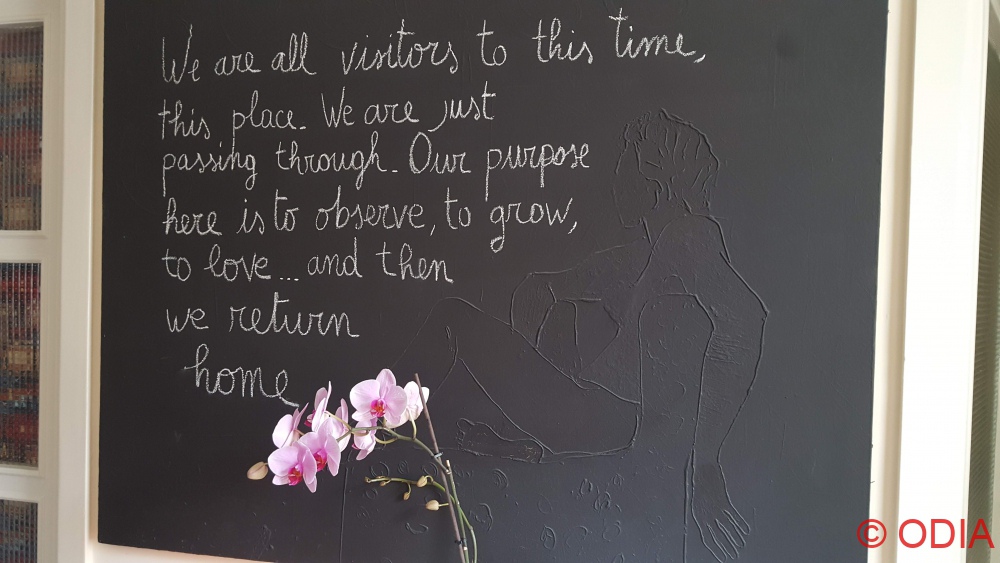 We are all visitors to this time,
this place. We are just
passing through. Our purpose
here is to observe, to grow,
to love... and then
we return
home
© ODIA